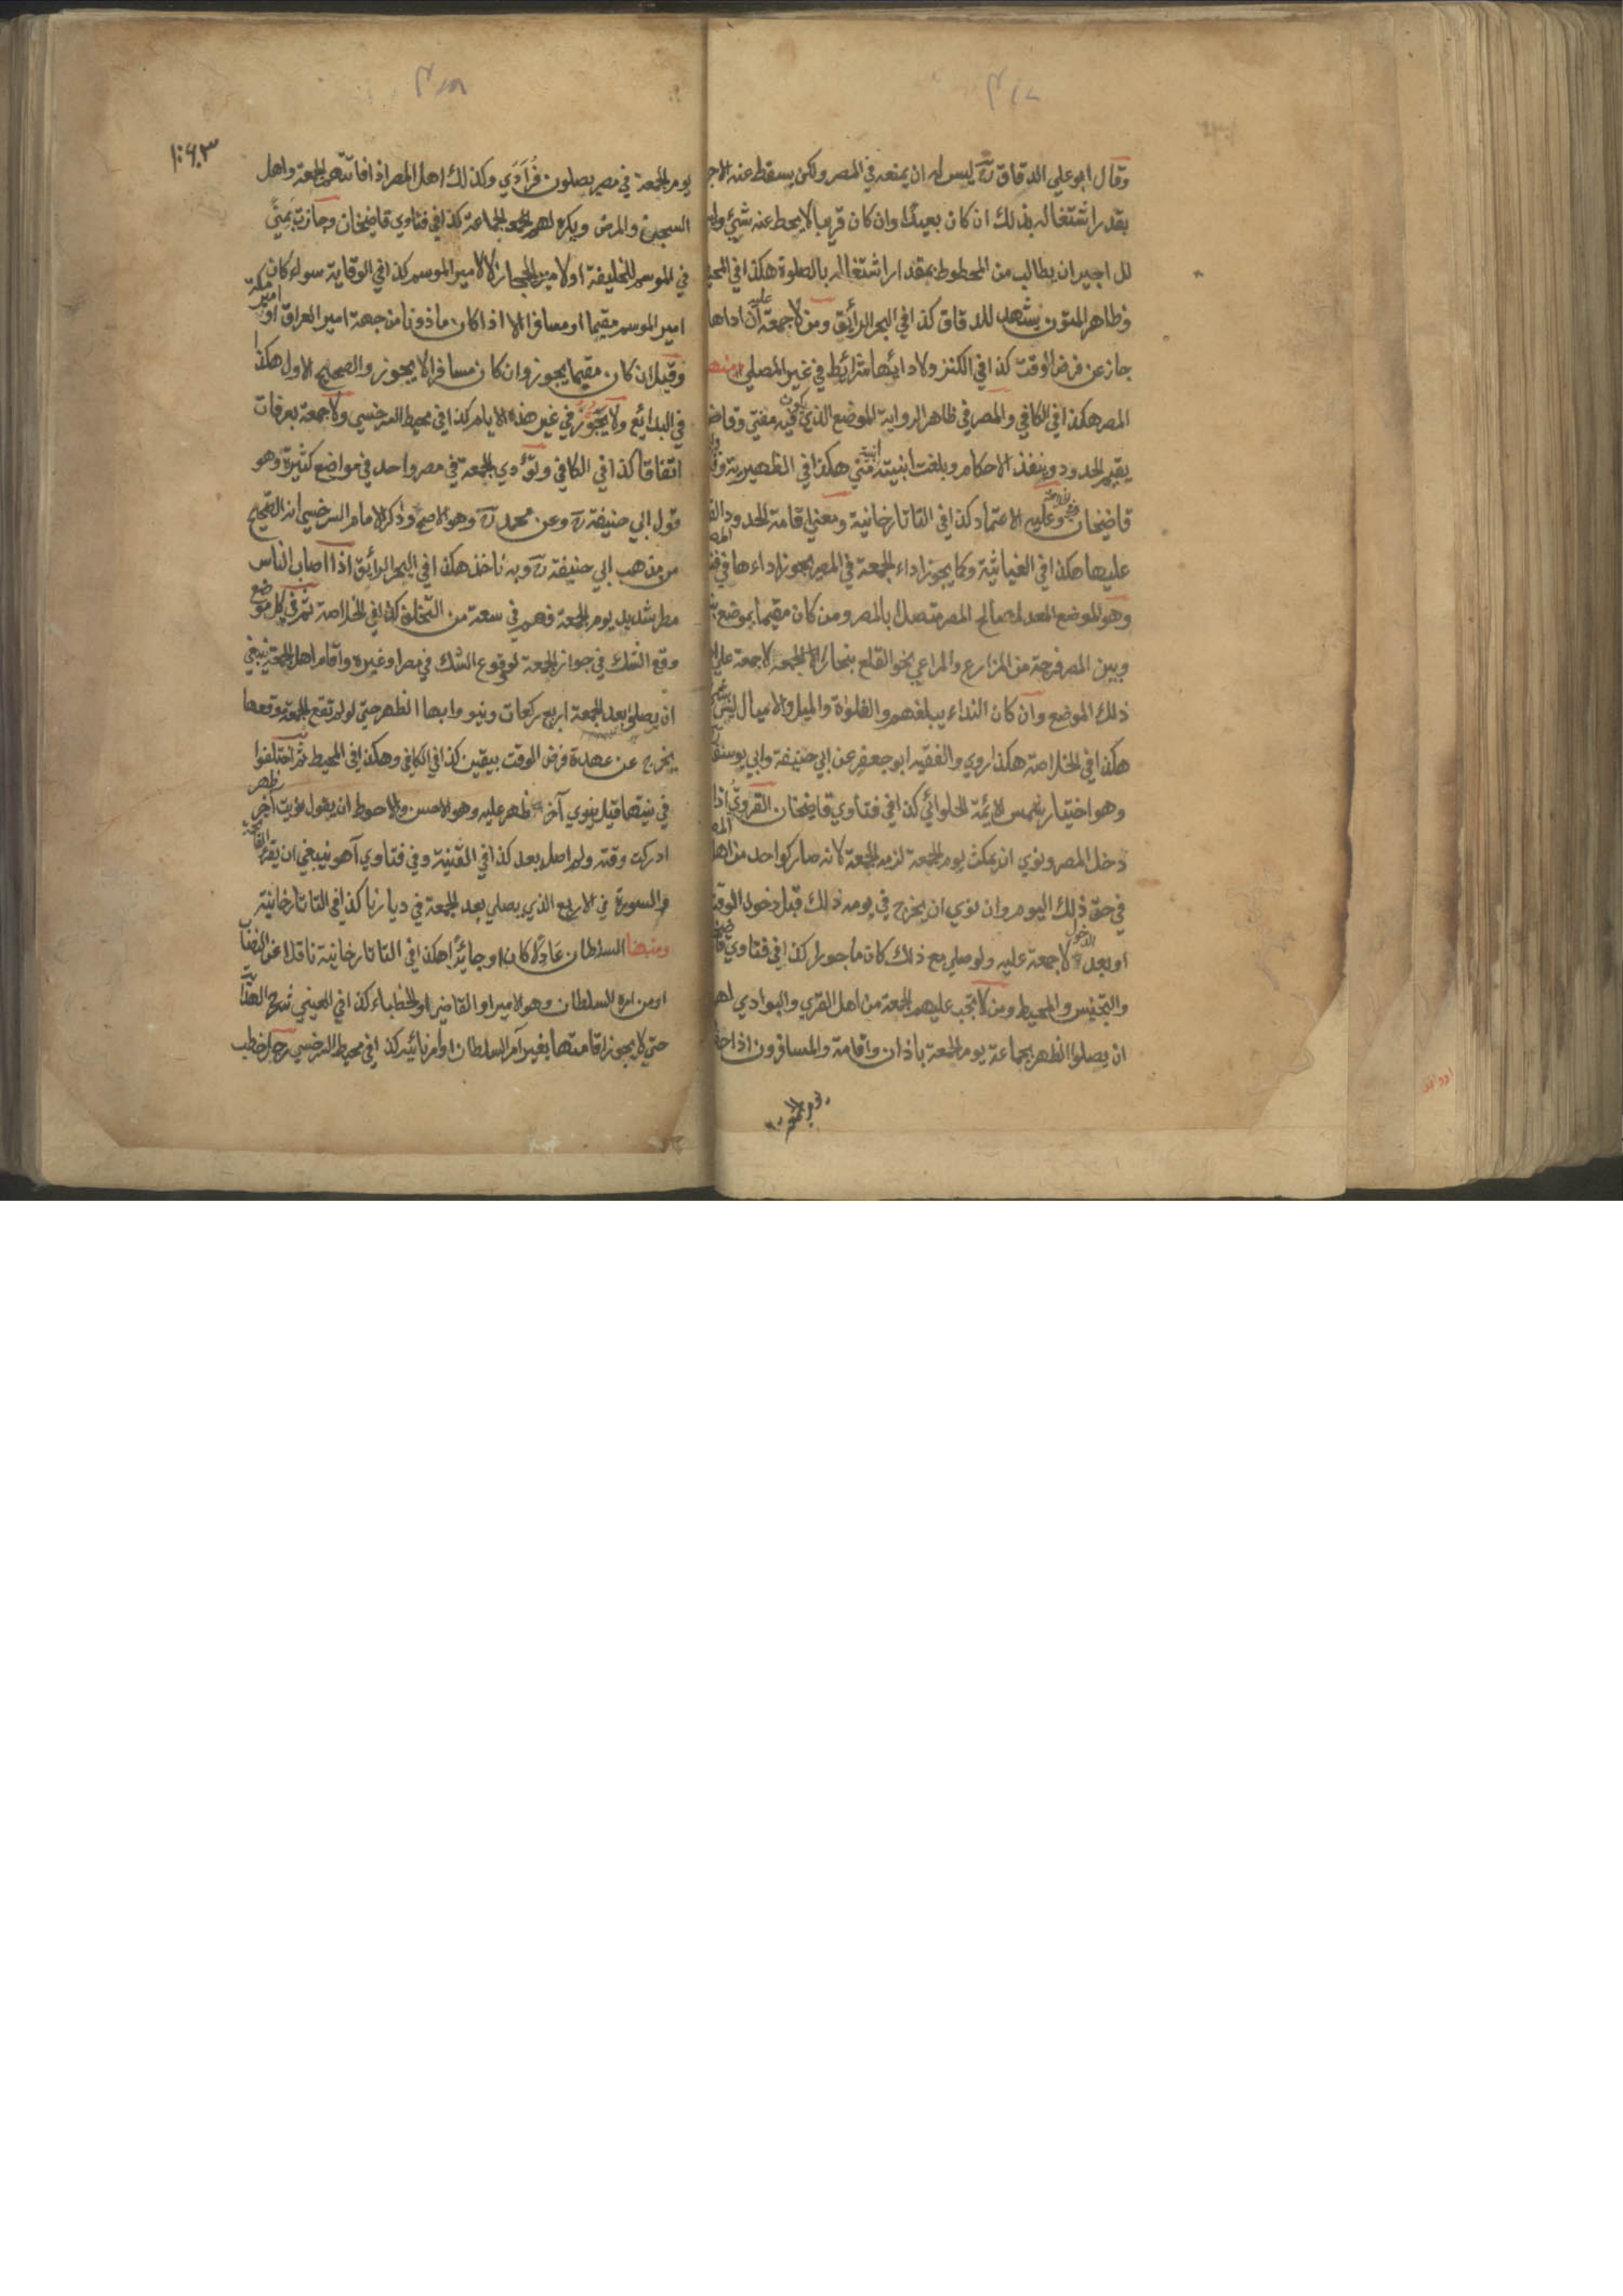 وقال ابو علي الدقاق رح ليس له ان يمنعه في المصر ولكن يسقط عنه الاجر
بقدر اشتغاله بذلك ان كان بعيدا وان كان قريبا لا يحط عنه شيئ
للاجير ان يطالب من المحطوط بمقدار اشتغاله بالصلوة هكذا في المحيط
وظاهر المتون يشهد للدقاق كذا في البحر الرائق ومن لا جمعة عليه ان اداها
جاز عن فرض الوقت كذا في الكنز ولادائها شرائط في غير المصلي منها
المصر هكذا في الكافي والمصر في ظاهر الرواية الموضع الذي يكون فيه مفتي وقاض
يقيم الحدود وينفذ الاحكام وبلغت ابنيته ابنية مني هكذا في الظهيرية
قاضيخان وعليه الاعتماد كذا في التاتارخانية ومعني اقامة الحدود
عليها هكذا في الغياثية وكما يجوز اداء الجمعة في المصر يجوز اداءها في
وهو الموضع المعد لمصالح المصر متصل بالمصر ومن كان مقيما بموضع
وبين المصر فرجة من المزارع والمراعي نحو القلع ببخارا لا جمعة علي
ذلك الموضع وان كان النداء يبلغهم والغلوة والميل والاميال ليس
هكذا في الخلاصة هكذا روي الفقيه ابو جعفر عن ابي حنيفة وابي يوسف
وهو اختيار شمس الايمة الحلوائي كذا في فتاوي قاضيخان القروي اذا
دخل المصر ونوي ان يمكث يوم الجمعة لزمه الجمعة لانه صار كواحد من اهل المصر
في حق ذلك اليوم وان نوي ان يخرج في يومه ذلك قبل دخول الوقت
او بعد الدخول لا جمعة عليه ولو صلي مع ذلك كان ماجورا كذا في فتاوي
والتجنيس والمحيط ومن لا تجب عليهم الجمعة من اهل القري والبوادي لهم
ان يصلوا الظهر بجماعة يوم الجمعة باذان واقامة والمسافرون اذا
يوم الجمعة في مصر يصلون فرادي وكذلك اهل المصر اذا فاتتهم الجمعة واهل
السجن والمرض ويكره لهم الجماعة كذا في فتاوي قاضيخان وجازت بمني
في الموسم للخليفة او لامير الحجاز لا لامير الموسم كذا في الوقاية سواء كان
امير الموسم مقيما او مسافرا الا اذا كان ماذونا من جهة امير العراق او امير مكة
وقيل ان كان مقيما يجوز وان كان مسافرا لا يجوز والصحيح الاول هكذا
في البدائع ولا يجوز في غير هذه الايام كذا في محيط السرخسي ولا جمعة بعرفات
اتفاقا كذا في الكافي وتؤدي الجمعة في مصر واحد في مواضع كثيرة وهو
قول ابي حنيفة رح وعن محمد رح وهو الاصح وذكر الامام السرخسي انه الصحيح
من مذهب ابي حنيفة رح وبه ناخذ هكذا في البحر الرائق اذا اصاب الناس
مطر شديد يوم الجمعة فهم في سعة من التخلف كذا في الخلاصة ثم في كل موضع
وقع الشك في جواز الجمعة لوقوع الشك في مصر او غيره واقام اهل الجمعة ينبغي
ان يصلوا بعد الجمعة اربع ركعات وينووا بها الظهر حتي لو لم تقع الجمعة موقعها
يخرج عن عهدة فرض الوقت بيقين كذا في الكافي وهكذا في المحيط ثم اختلفوا
في نيتها قيل ينوي آخر ظهر عليه وهو الاحسن والاحوط ان يقول نويت آخر ظهر
ادركت وقته ولم اصل بعد كذا في القنية وفي فتاوي آهو ينبغي ان يقرأ الفاتحة
والسورة في الاربع الذي يصلي بعد الجمعة في ديارنا كذا في التاتارخانية
ومنها السلطان عادلا كان او جائرا هكذا في التاتارخانية ناقلا عن النصاب
او من امره السلطان وهو الامير او القاضي او الخطباء كذا في العيني شرح الهداية
حتي لا يجوز اقامتها بغير امر السلطان او امر نائبه كذا في محيط السرخسي رجل خطب